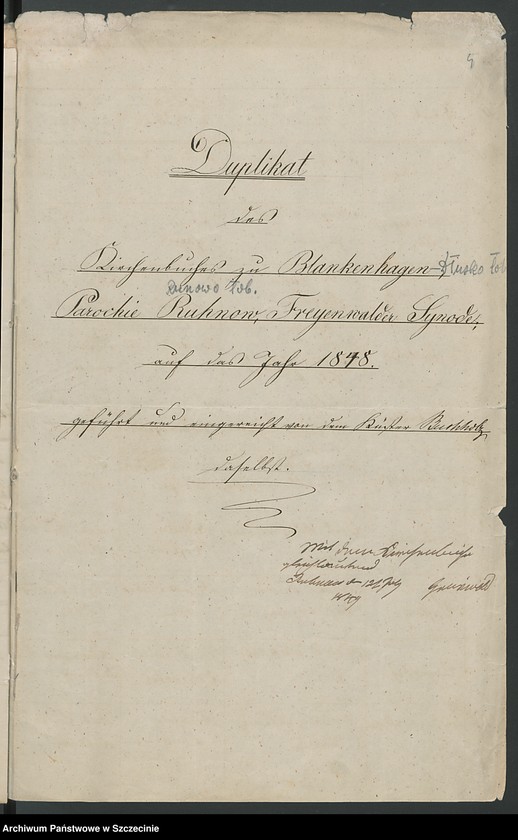 5
Duplikat
des
Kirchenbuches zu Blankenhagen, Dłusko Łob
Runowo Łob.
Parochie Ruhnow, Freyenwalder Synode,
auf das Jahr 1848.
geführt und eingereicht von dem Küster Buchholz
daselbst.
Mit dem Kirchenbuche
gleichlautend
Ruhnow d
Archiwum Państwowe w Szczecinie